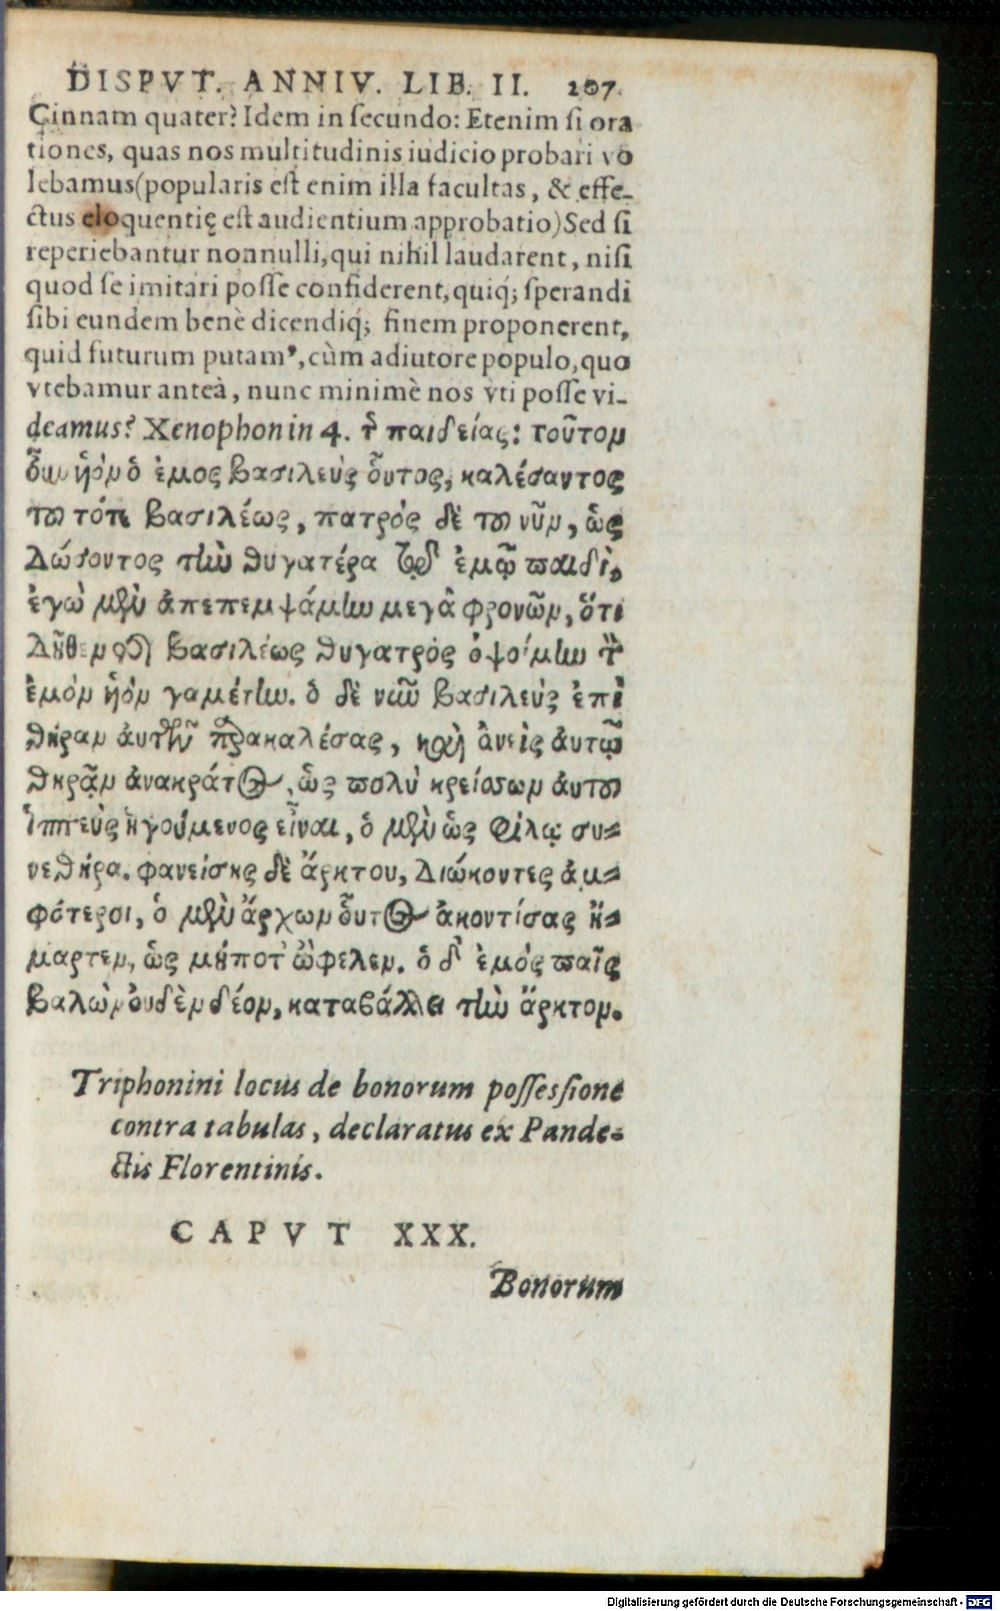 DISPVT. ANNIV. LIB. II. 207.
Cinnam quater? Idem in secundo: Etenim si ora
tiones, quas nos multitudinis iudicio probari vo
lebamus (popularis est enim illa facultas, & effe-
ctus eloquentię est audientium approbatio) Sed si
reperiebantur nonnulli, qui nihil laudarent, nisi
quod se imitari posse confiderent, quiq́; sperandi
sibi eundem benè dicendiq́; finem proponerent,
quid futurum putamꝰ, cùm adiutore populo, quo
vtebamur anteà, nunc minimè nos vti posse vi-
deamus? Xenophon in 4. τ̂ παιδείας: τοῦτον
οὖν ἡὸν ὁ ἐμος βασιλεὺς οὗτος, καλέσαντος
τοῦ τότε βασιλέως, πατρὸς δὲ τοῦ νῦν, ὡς
δώσοντος τὴν θυγατέρα τῷ ἐμῷ παιδὶ,
ἐγὼ μὲν ἀπεπεμψάμην μεγὰ φρονῶν, ὅτι
δῆθεν τῆς βασιλέως θυγατρὸς ὀψοίμην τ̂
ἐμὸν ἡὸν γαμέτην. ὁ δὲ νῦν βασιλεὺς ἐπὶ
θήραν ἀυτὸν παρακαλέσας, καὶ ἀνεὶς ἀυτῷ
θηρᾷν ἀνακράτος, ὡς πολὺ κρείσσων ἀυτοῦ
ἱππεὺς ἡγούμενος εἶναι, ὁ μὲν ὡς φίλῳ συ-
νεθήρα. φανείσης δὲ ἄρκτου, διώκοντες ἀμ-
φότεροι, ὁ μὲν ἄρχων οὗτος ἀκοντίσας ἥ-
μαρτεν, ὡς μήποτ' ὤφελεν. ὁ δ' ἐμὸς παῖς
βαλὼν ὀυδὲν δέον, καταβάλλει τὴν ἄρκτον.
Triphonini locus de bonorum possessione
contra tabulas, declaratus ex Pande-
ctis Florentinis.
CAPVT XXX.
Bonorum
Digitalisierung gefördert durch die Deutsche Forschungsgemeinschaft - DFG